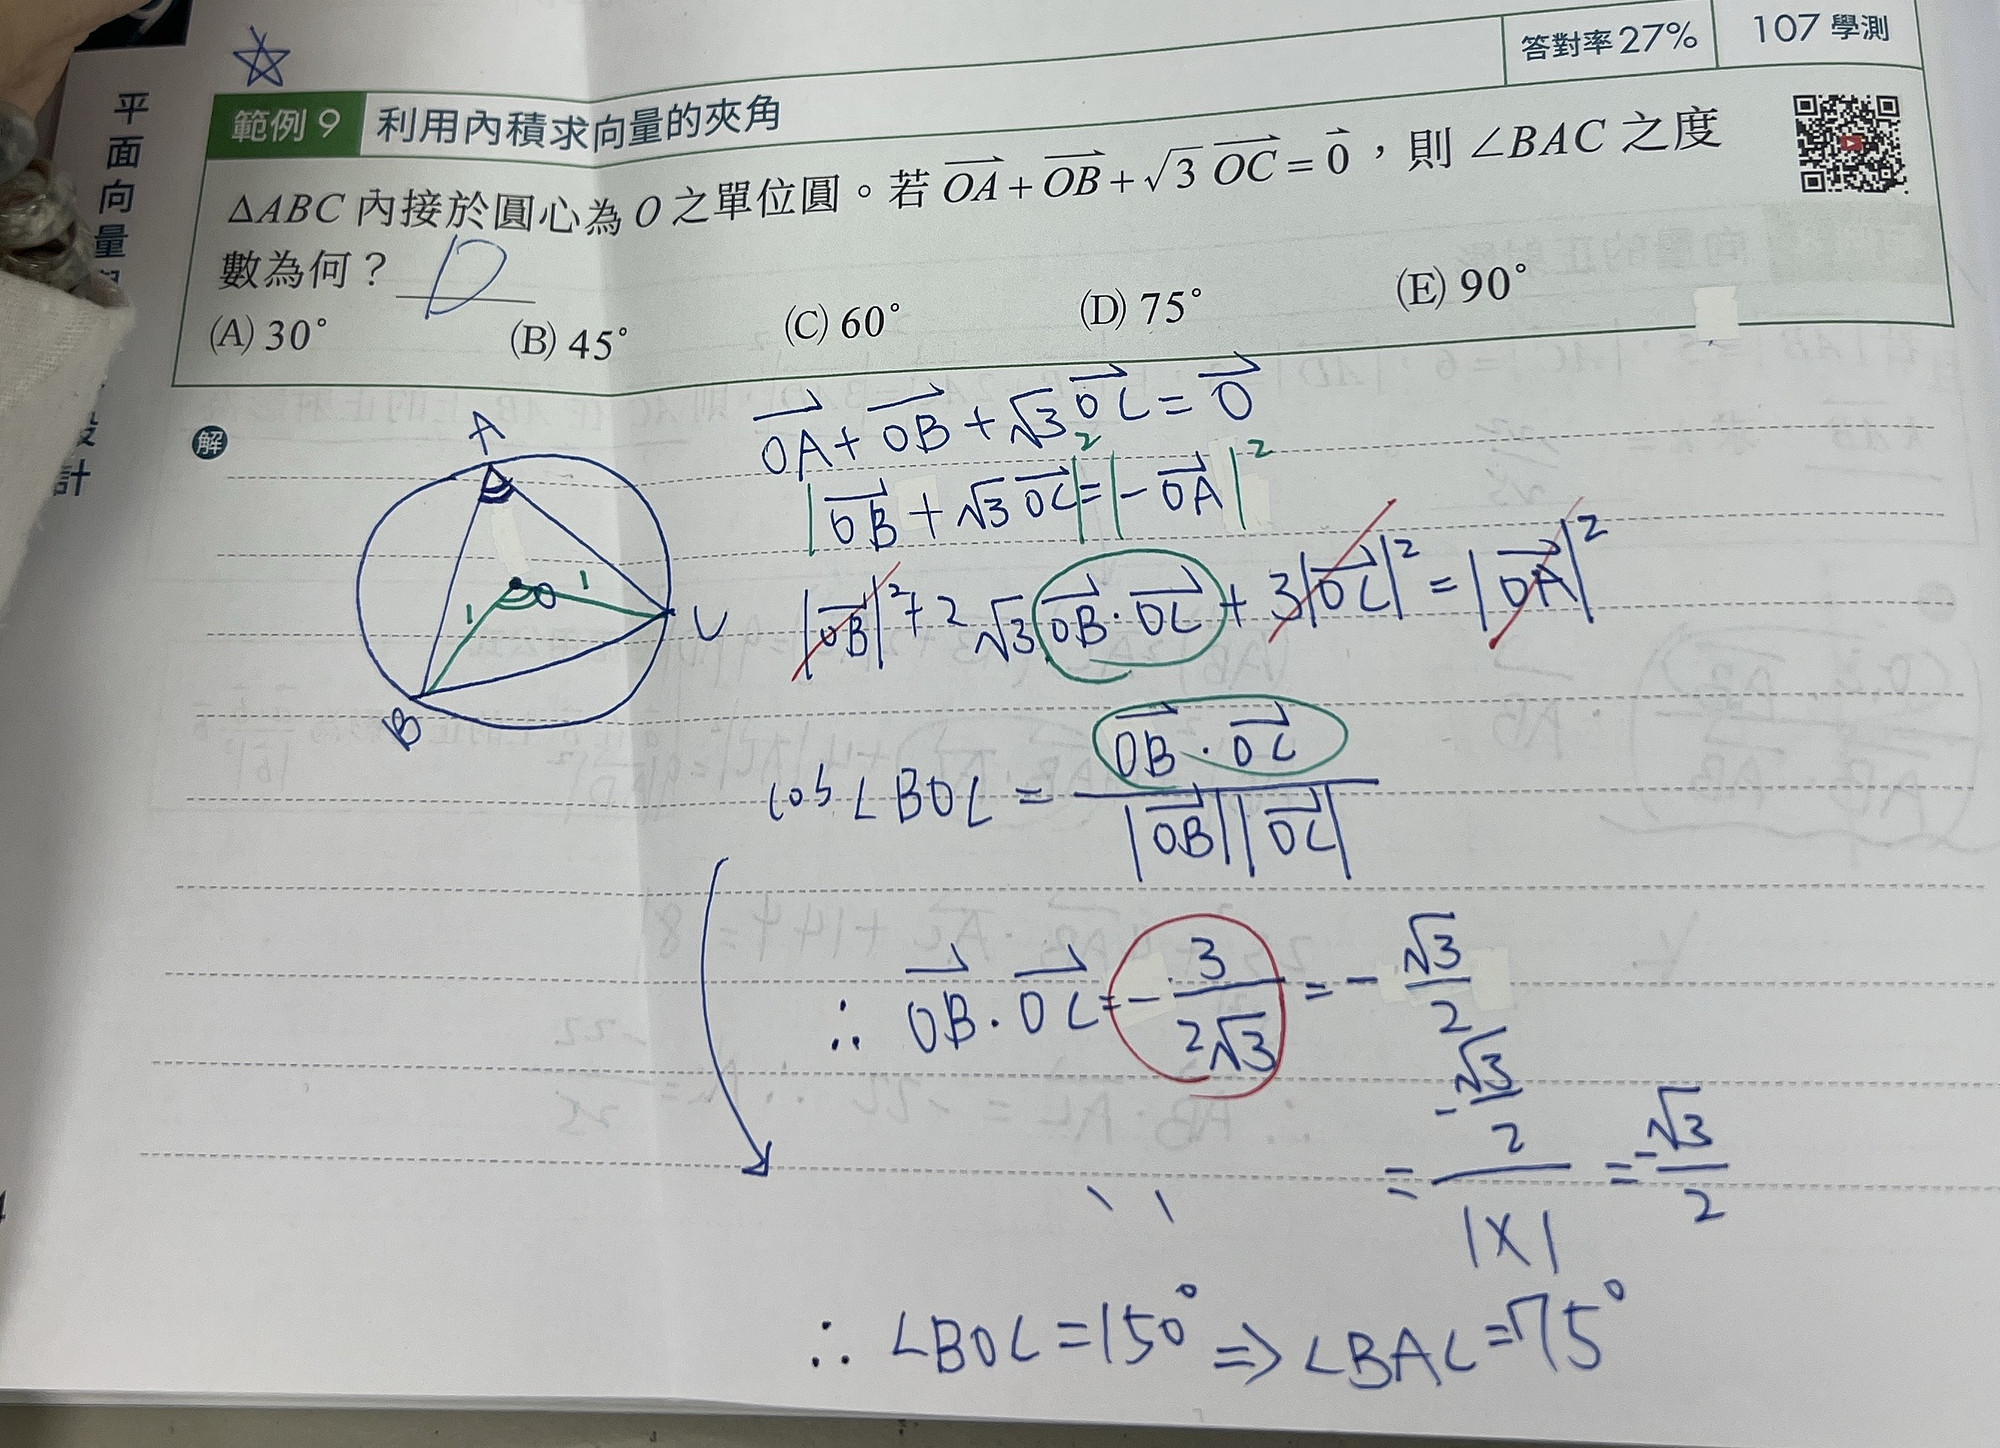 答對率27% 107 學測
範例 9 利用內積求向量的夾角
△ABC 內接於圓心為 O 之單位圓。若 $\overrightarrow{OA}+\overrightarrow{OB}+\sqrt{3}\,\overrightarrow{OC}=\vec{0}$,則 ∠BAC 之度
數為何? D
(A) 30° (B) 45° (C) 60° (D) 75° (E) 90°
平面向量
設計
解
A
B
C
O
1
1
$\overrightarrow{OA}+\overrightarrow{OB}+\sqrt{3}\,\overrightarrow{OC}=\vec{0}$
$|\overrightarrow{OB}+\sqrt{3}\,\overrightarrow{OC}|^2=|-\overrightarrow{OA}|^2$
$|\overrightarrow{OB}|^2+2\sqrt{3}\,\overrightarrow{OB}\cdot\overrightarrow{OC}+3|\overrightarrow{OC}|^2=|\overrightarrow{OA}|^2$
$\cos\angle BOC=\frac{\overrightarrow{OB}\cdot\overrightarrow{OC}}{|\overrightarrow{OB}||\overrightarrow{OC}|}$
$\therefore \overrightarrow{OB}\cdot\overrightarrow{OC}=-\frac{3}{2\sqrt{3}}=-\frac{\sqrt{3}}{2}$
$=\frac{-\frac{\sqrt{3}}{2}}{1\times 1}=-\frac{\sqrt{3}}{2}$
∴ ∠BOC=150° ⇒ ∠BAC=75°